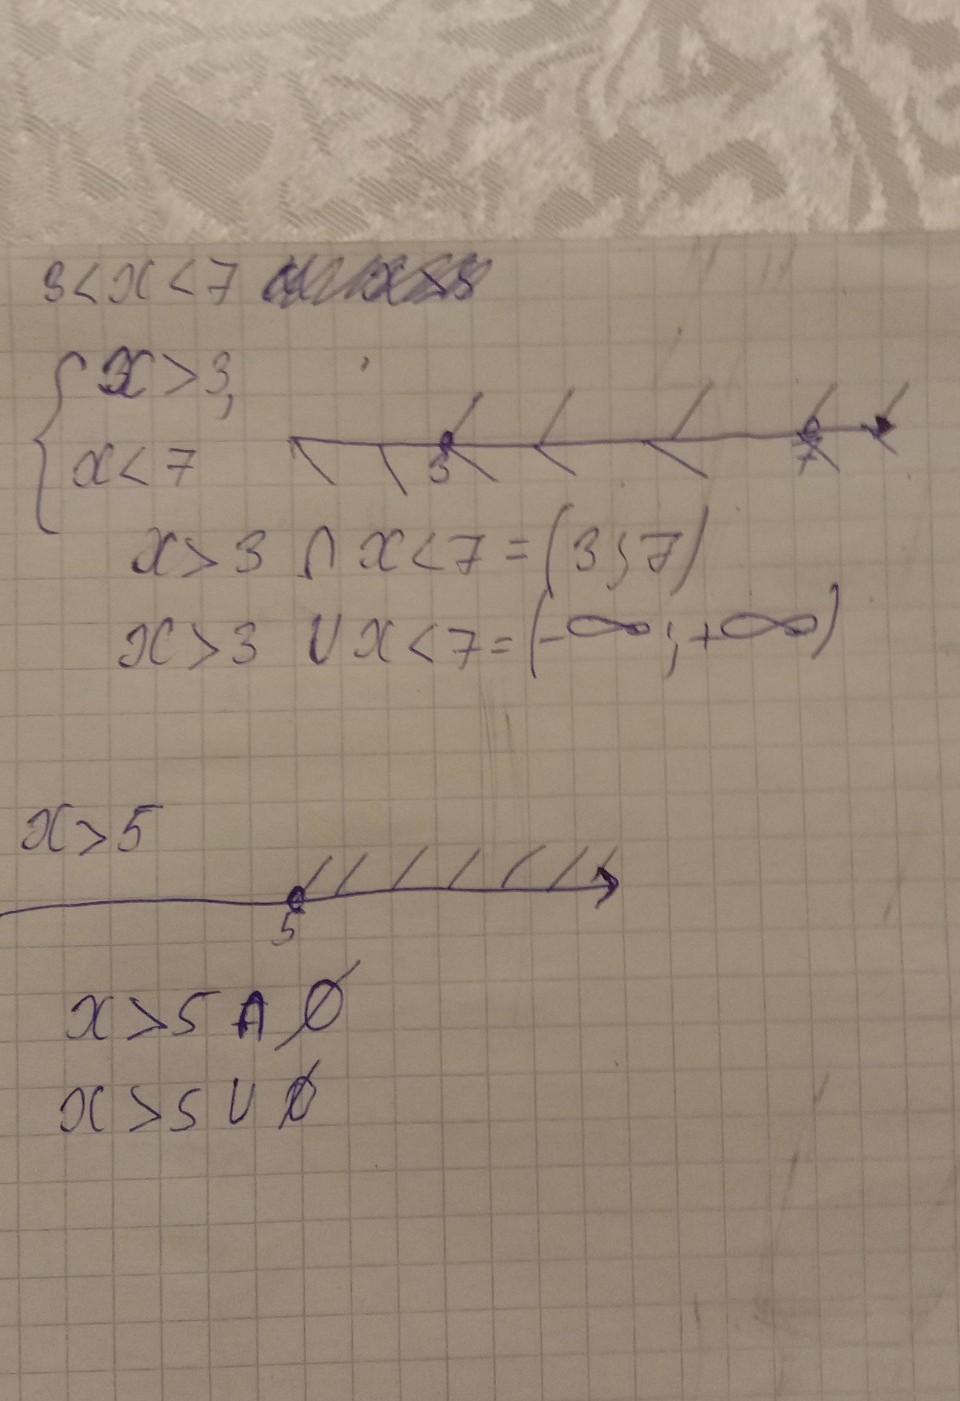 3<x<7
{ x>3,
x<7
3 7
x>3 ∩ x<7=(3;7)
x>3 ∪ x<7=(-∞;+∞)
x>5
5
x>5 ∩ ∅
x>5 ∪ ∅